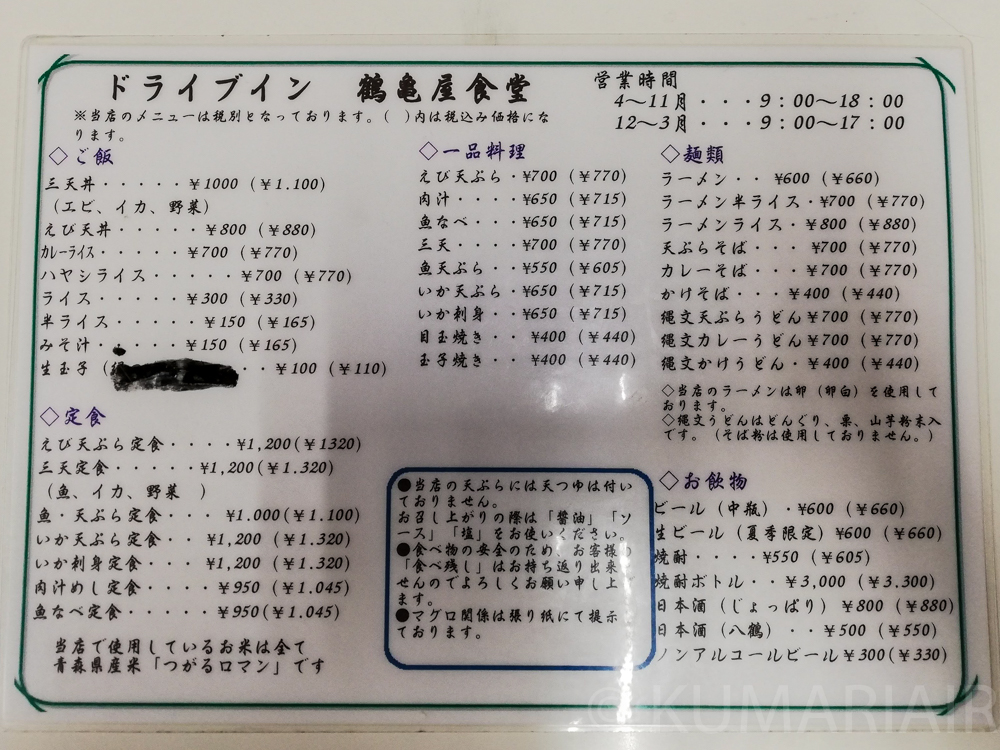 ドライブイン　鶴亀屋食堂
※当店のメニューは税別となっております。(　)内は税込み価格にな
ります。
営業時間
4～11月・・・9：00～18：00
12～3月・・・9：00～17：00
◇ご飯
三天丼・・・・・￥1000（￥1.100）
（エビ、イカ、野菜）
えび天丼・・・・・￥800（￥880）
カレーライス・・・・・￥700（￥770）
ハヤシライス・・・・・￥700（￥770）
ライス・・・・・￥300（￥330）
半ライス・・・・・￥150（￥165）
みそ汁・・・・・￥150（￥165）
生玉子（ ・・￥100（￥110）
◇定食
えび天ぷら定食・・・・¥1,200(￥1320)
三天定食・・・・・¥1,200(￥1.320)
（魚、イカ、野菜　）
魚・天ぷら定食・・・￥1.000(￥1.100)
いか天ぷら定食・・￥1,200（￥1.320)
いか刺身定食・・・￥1,200（￥1.320)
肉汁めし定食・・・・￥950（￥1.045)
魚なべ定食・・・・・￥950(￥1.045)
当店で使用しているお米は全て
青森県産米「つがるロマン」です
◇一品料理
えび天ぷら・¥700（￥770）
肉汁・・・・¥650（￥715）
魚なべ・・・¥650（￥715）
三天・・・・¥700（￥770）
魚天ぷら・・¥550（￥605）
いか天ぷら・¥650（￥715）
いか刺身・・¥650（￥715）
目玉焼き・・¥400（￥440）
玉子焼き・・¥400（￥440）
●当店の天ぷらには天つゆは付い
ておりません。
お召し上がりの際は「醤油」「ソ
ース」「塩」をお使いください。
●食べ物の安全のため、お客様の
「食べ残し」はお持ち返り出来
せんのでよろしくお願い申し上
ます。
●マグロ関係は張り紙にて提示
ております。
◇麺類
ラーメン・・¥600（￥660）
ラーメン半ライス・¥700（￥770）
ラーメンライス・￥800（￥880）
天ぷらそば・・・¥700（￥770）
カレーそば・・・￥700（￥770）
かけそば・・・￥400（￥440）
縄文天ぷらうどん¥700（￥770）
縄文カレーうどん￥700（￥770）
縄文かけうどん・￥400（￥440）
◇当店のラーメンは卵（卵白）を使用して
おります。
◇縄文うどんはどんぐり、粟、山芋粉末入
です。（そば粉は使用しておりません。）
◇お飲物
ビール（中瓶）・¥600（￥660）
生ビール（夏季限定）¥600（￥660）
焼酎・・・・¥550（￥605）
焼酎ボトル・・￥3,000（￥3.300）
日本酒（じょっぱり）￥800（￥880）
日本酒（八鶴）・・￥500（￥550）
ノンアルコールビール￥300(￥330)
©KUMARIAIR